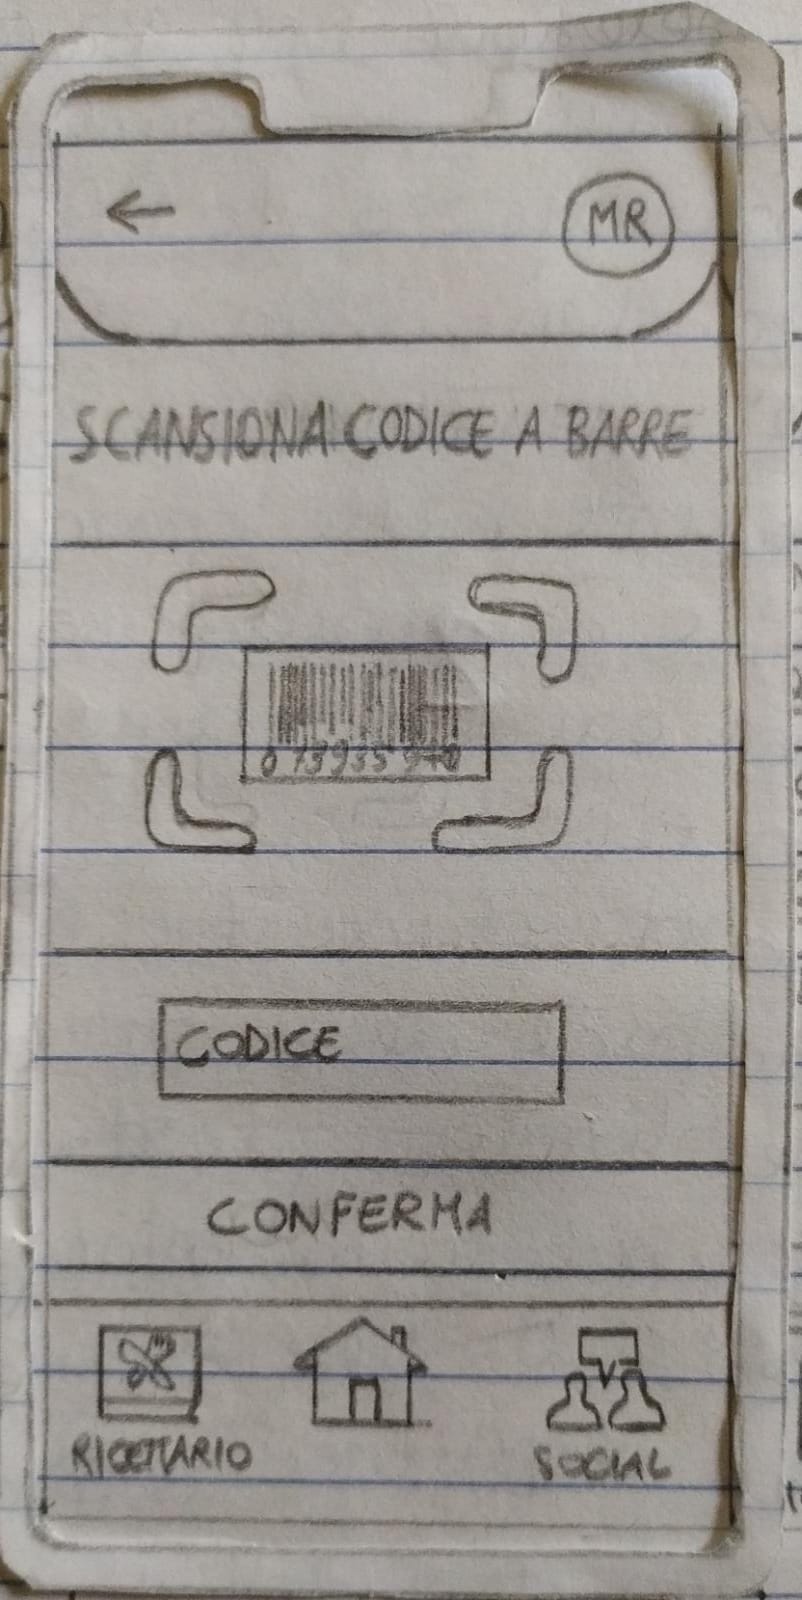 MR
SCANSIONA CODICE A BARRE
CODICE
CONFERMA
RICETTARIO
SOCIAL